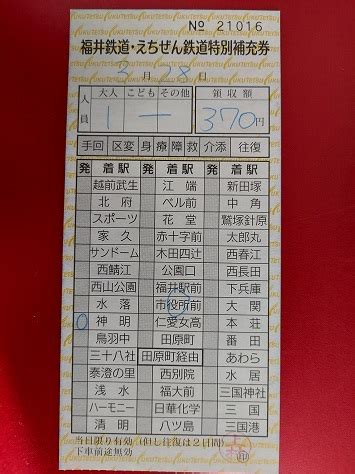 № 21016
福井鉄道・えちぜん鉄道特別補充券
3月28日
人員 大人 こども その他 領収額
1 ー 370円
手回 区変 身 療 障 救 介添 往復
発 着駅 発 着駅 発 着駅
越前武生 江端 新田塚
北府 ベル前 中角
スポーツ 花堂 鷲塚針原
家久 赤十字前 太郎丸
サンドーム 木田四辻 西春江
西鯖江 公園口 西長田
西山公園 福井駅前 下兵庫
水落 市役所前 大関
神明 仁愛女高 本荘
鳥羽中 田原町 番田
三十八社 田原町経由 あわら
泰澄の里 西別院 水居
浅水 福大前 三国神社
ハーモニー 日華化学 三国
清明 八ツ島 三国港
当日限り有効(但し往復は2日間)
下車前途無効